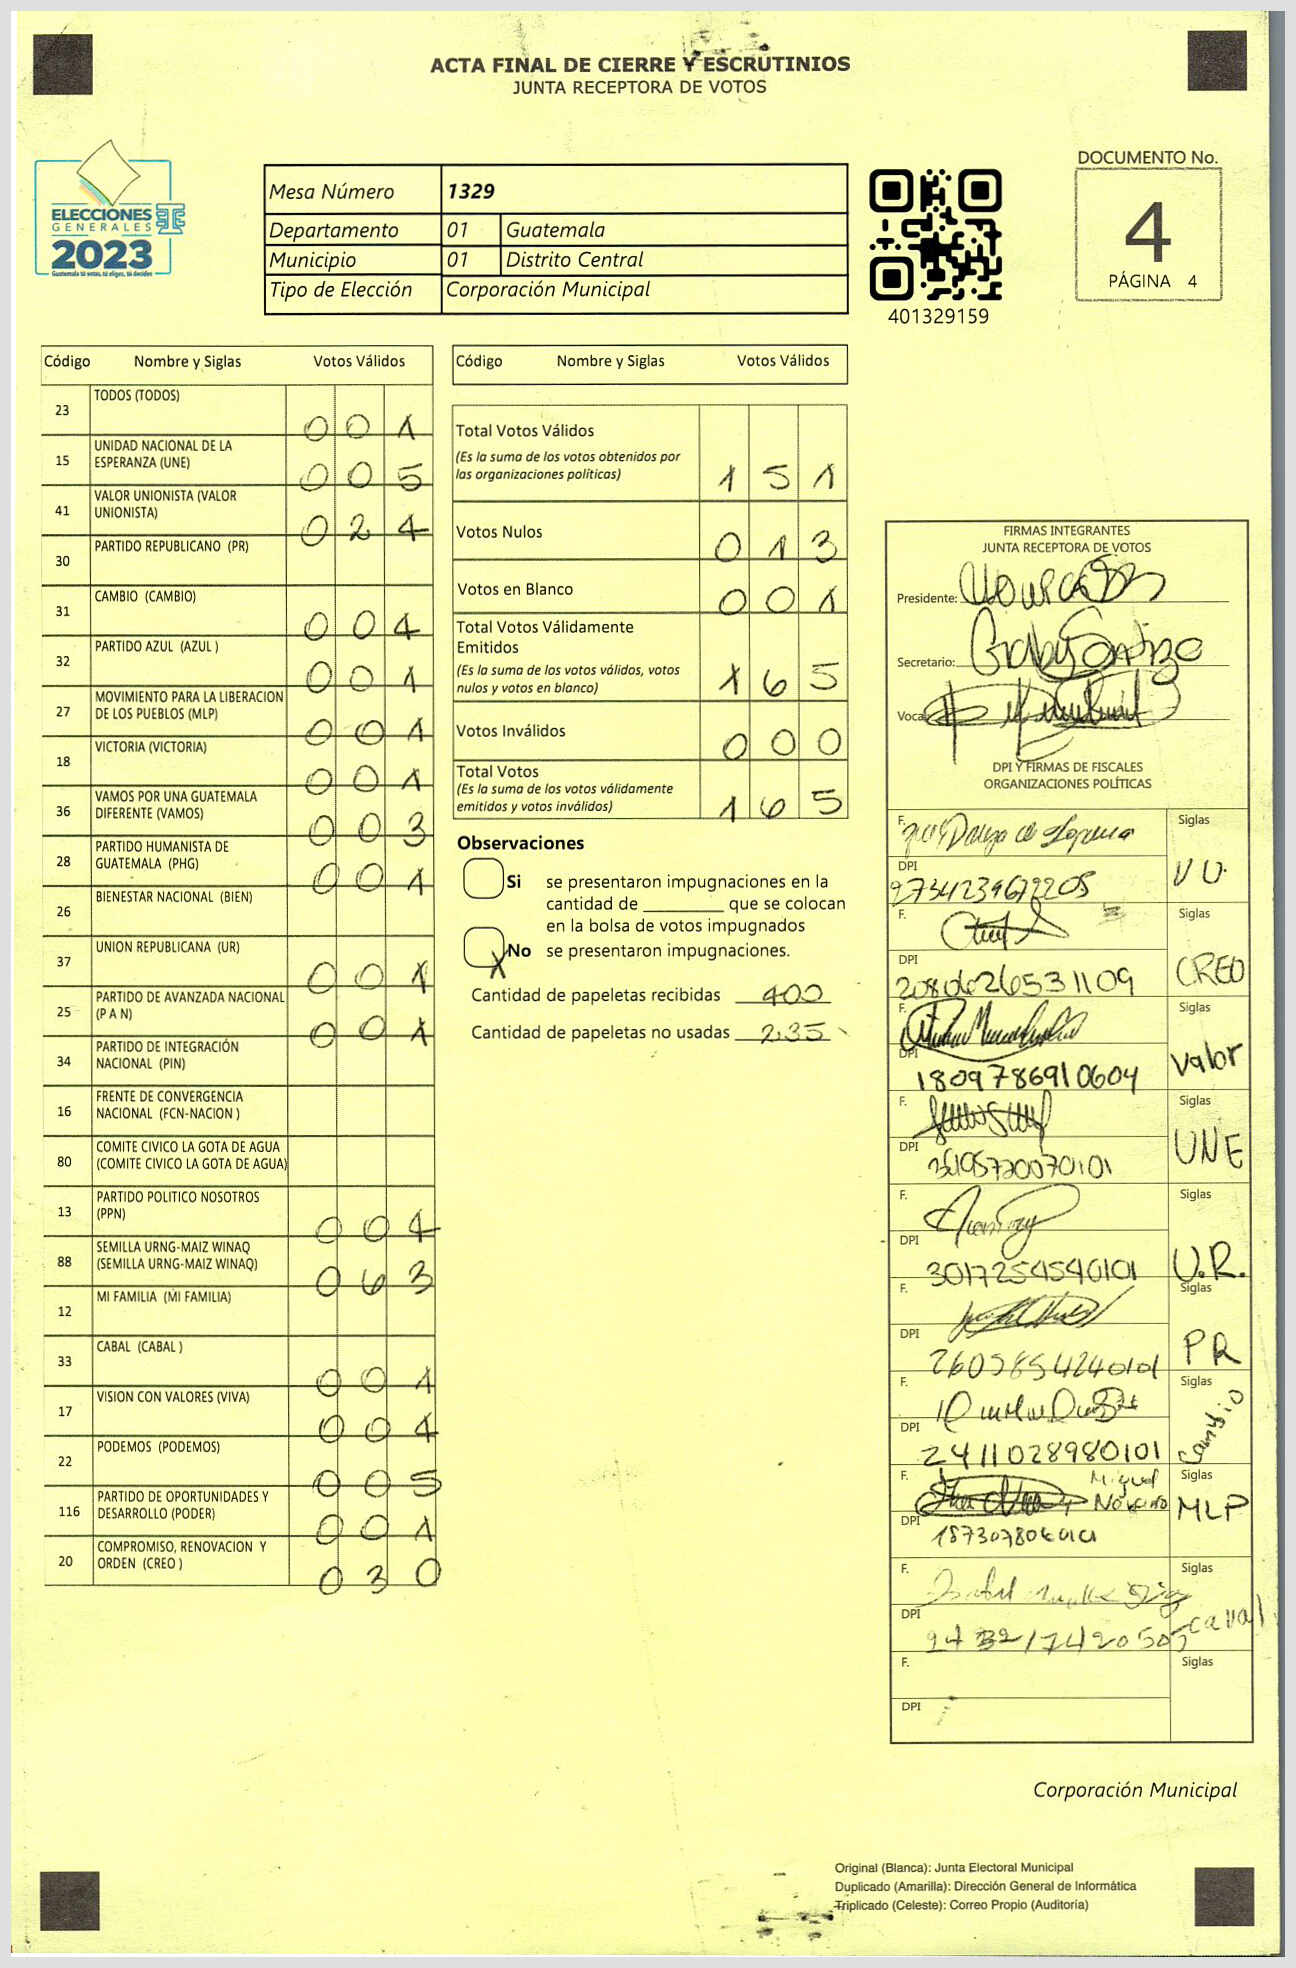 ACTA FINAL DE CIERRE Y ESCRUTINIOS
JUNTA RECEPTORA DE VOTOS
ELECCIONES
GENERALES
2023
Guatemala tú votas, tú eliges, tú decides
Mesa Número 1329
Departamento 01 Guatemala
Municipio 01 Distrito Central
Tipo de Elección Corporación Municipal
401329159
DOCUMENTO No.
4
PÁGINA 4
Código Nombre y Siglas Votos Válidos
23 TODOS (TODOS) 0 0 1
15 UNIDAD NACIONAL DE LA
ESPERANZA (UNE) 0 0 5
41 VALOR UNIONISTA (VALOR
UNIONISTA) 0 2 4
30 PARTIDO REPUBLICANO (PR)
31 CAMBIO (CAMBIO) 0 0 4
32 PARTIDO AZUL (AZUL ) 0 0 1
27 MOVIMIENTO PARA LA LIBERACION
DE LOS PUEBLOS (MLP) 0 0 1
18 VICTORIA (VICTORIA) 0 0 1
36 VAMOS POR UNA GUATEMALA
DIFERENTE (VAMOS) 0 0 3
28 PARTIDO HUMANISTA DE
GUATEMALA (PHG) 0 0 1
26 BIENESTAR NACIONAL (BIEN)
37 UNION REPUBLICANA (UR) 0 0 1
25 PARTIDO DE AVANZADA NACIONAL
(P A N) 0 0 1
34 PARTIDO DE INTEGRACIÓN
NACIONAL (PIN)
16 FRENTE DE CONVERGENCIA
NACIONAL (FCN-NACION )
80 COMITE CIVICO LA GOTA DE AGUA
(COMITE CIVICO LA GOTA DE AGUA)
13 PARTIDO POLITICO NOSOTROS
(PPN) 0 0 4
88 SEMILLA URNG-MAIZ WINAQ
(SEMILLA URNG-MAIZ WINAQ) 0 6 3
12 MI FAMILIA (MI FAMILIA)
33 CABAL (CABAL ) 0 0 1
17 VISION CON VALORES (VIVA) 0 0 4
22 PODEMOS (PODEMOS) 0 0 5
116 PARTIDO DE OPORTUNIDADES Y
DESARROLLO (PODER) 0 0 1
20 COMPROMISO, RENOVACION Y
ORDEN (CREO ) 0 3 0
Código Nombre y Siglas Votos Válidos
Total Votos Válidos
(Es la suma de los votos obtenidos por
las organizaciones políticas) 1 5 1
Votos Nulos 0 1 3
Votos en Blanco 0 0 1
Total Votos Válidamente
Emitidos
(Es la suma de los votos válidos, votos
nulos y votos en blanco) 1 6 5
Votos Inválidos 0 0 0
Total Votos
(Es la suma de los votos válidamente
emitidos y votos inválidos) 1 6 5
Observaciones
Si se presentaron impugnaciones en la
cantidad de ________ que se colocan
en la bolsa de votos impugnados
X No se presentaron impugnaciones.
Cantidad de papeletas recibidas 400
Cantidad de papeletas no usadas 235
FIRMAS INTEGRANTES
JUNTA RECEPTORA DE VOTOS
Presidente:
Secretario:
Vocal
DPI Y FIRMAS DE FISCALES
ORGANIZACIONES POLÍTICAS
F. Siglas
DPI VU.
F. Siglas
DPI CREO
2080626531109
F. Siglas
DPI Valor
1809786910604
F. Siglas
DPI UNE
F. Siglas
DPI U.R.
3017254540101
F. Siglas
DPI PR
2605854240101
F. Siglas
DPI Cambio
2411028980101
F. Miguel Siglas
DPI MLP
F. Siglas
DPI
F. Siglas
DPI
Corporación Municipal
Original (Blanca): Junta Electoral Municipal
Duplicado (Amarilla): Dirección General de Informática
Triplicado (Celeste): Correo Propio (Auditoría)